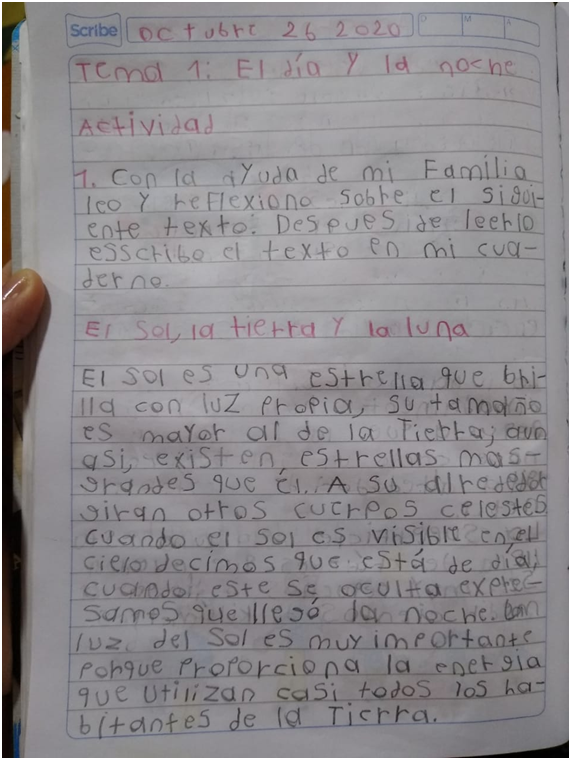 Scribe octubre 26 2020 D M A
Tema 1: El día y la noche
Actividad
1. Con la ayuda de mi Familia
leo y reflexiono sobre el sigui-
ente texto. Despues de leerlo
esscribo el texto en mi cua-
derno.
El Sol, la tierra y la luna
El sol es una estrella que bri-
lla con luz propia, su tamaño
es mayor al de la Tierra; aun
asi, existen, estrellas mas-
grandes que él. A su alrededor
giran otros cuerpos celestes
cuando el sol es visible en el
cielo decimos que está de día,
cuando este se oculta expre-
samos que llegó la noche. Lan
luz del Sol es muy importante
porque proporciona la energia
que utilizan casi todos los ha-
bitantes de la Tierra.